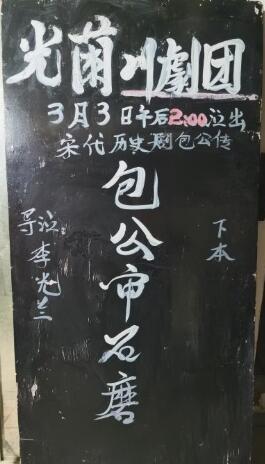 光菌川劇团
3月3日午后2:00泣出
宋代历史剧包公传
包公审石磨
导泣 李光兰
下本